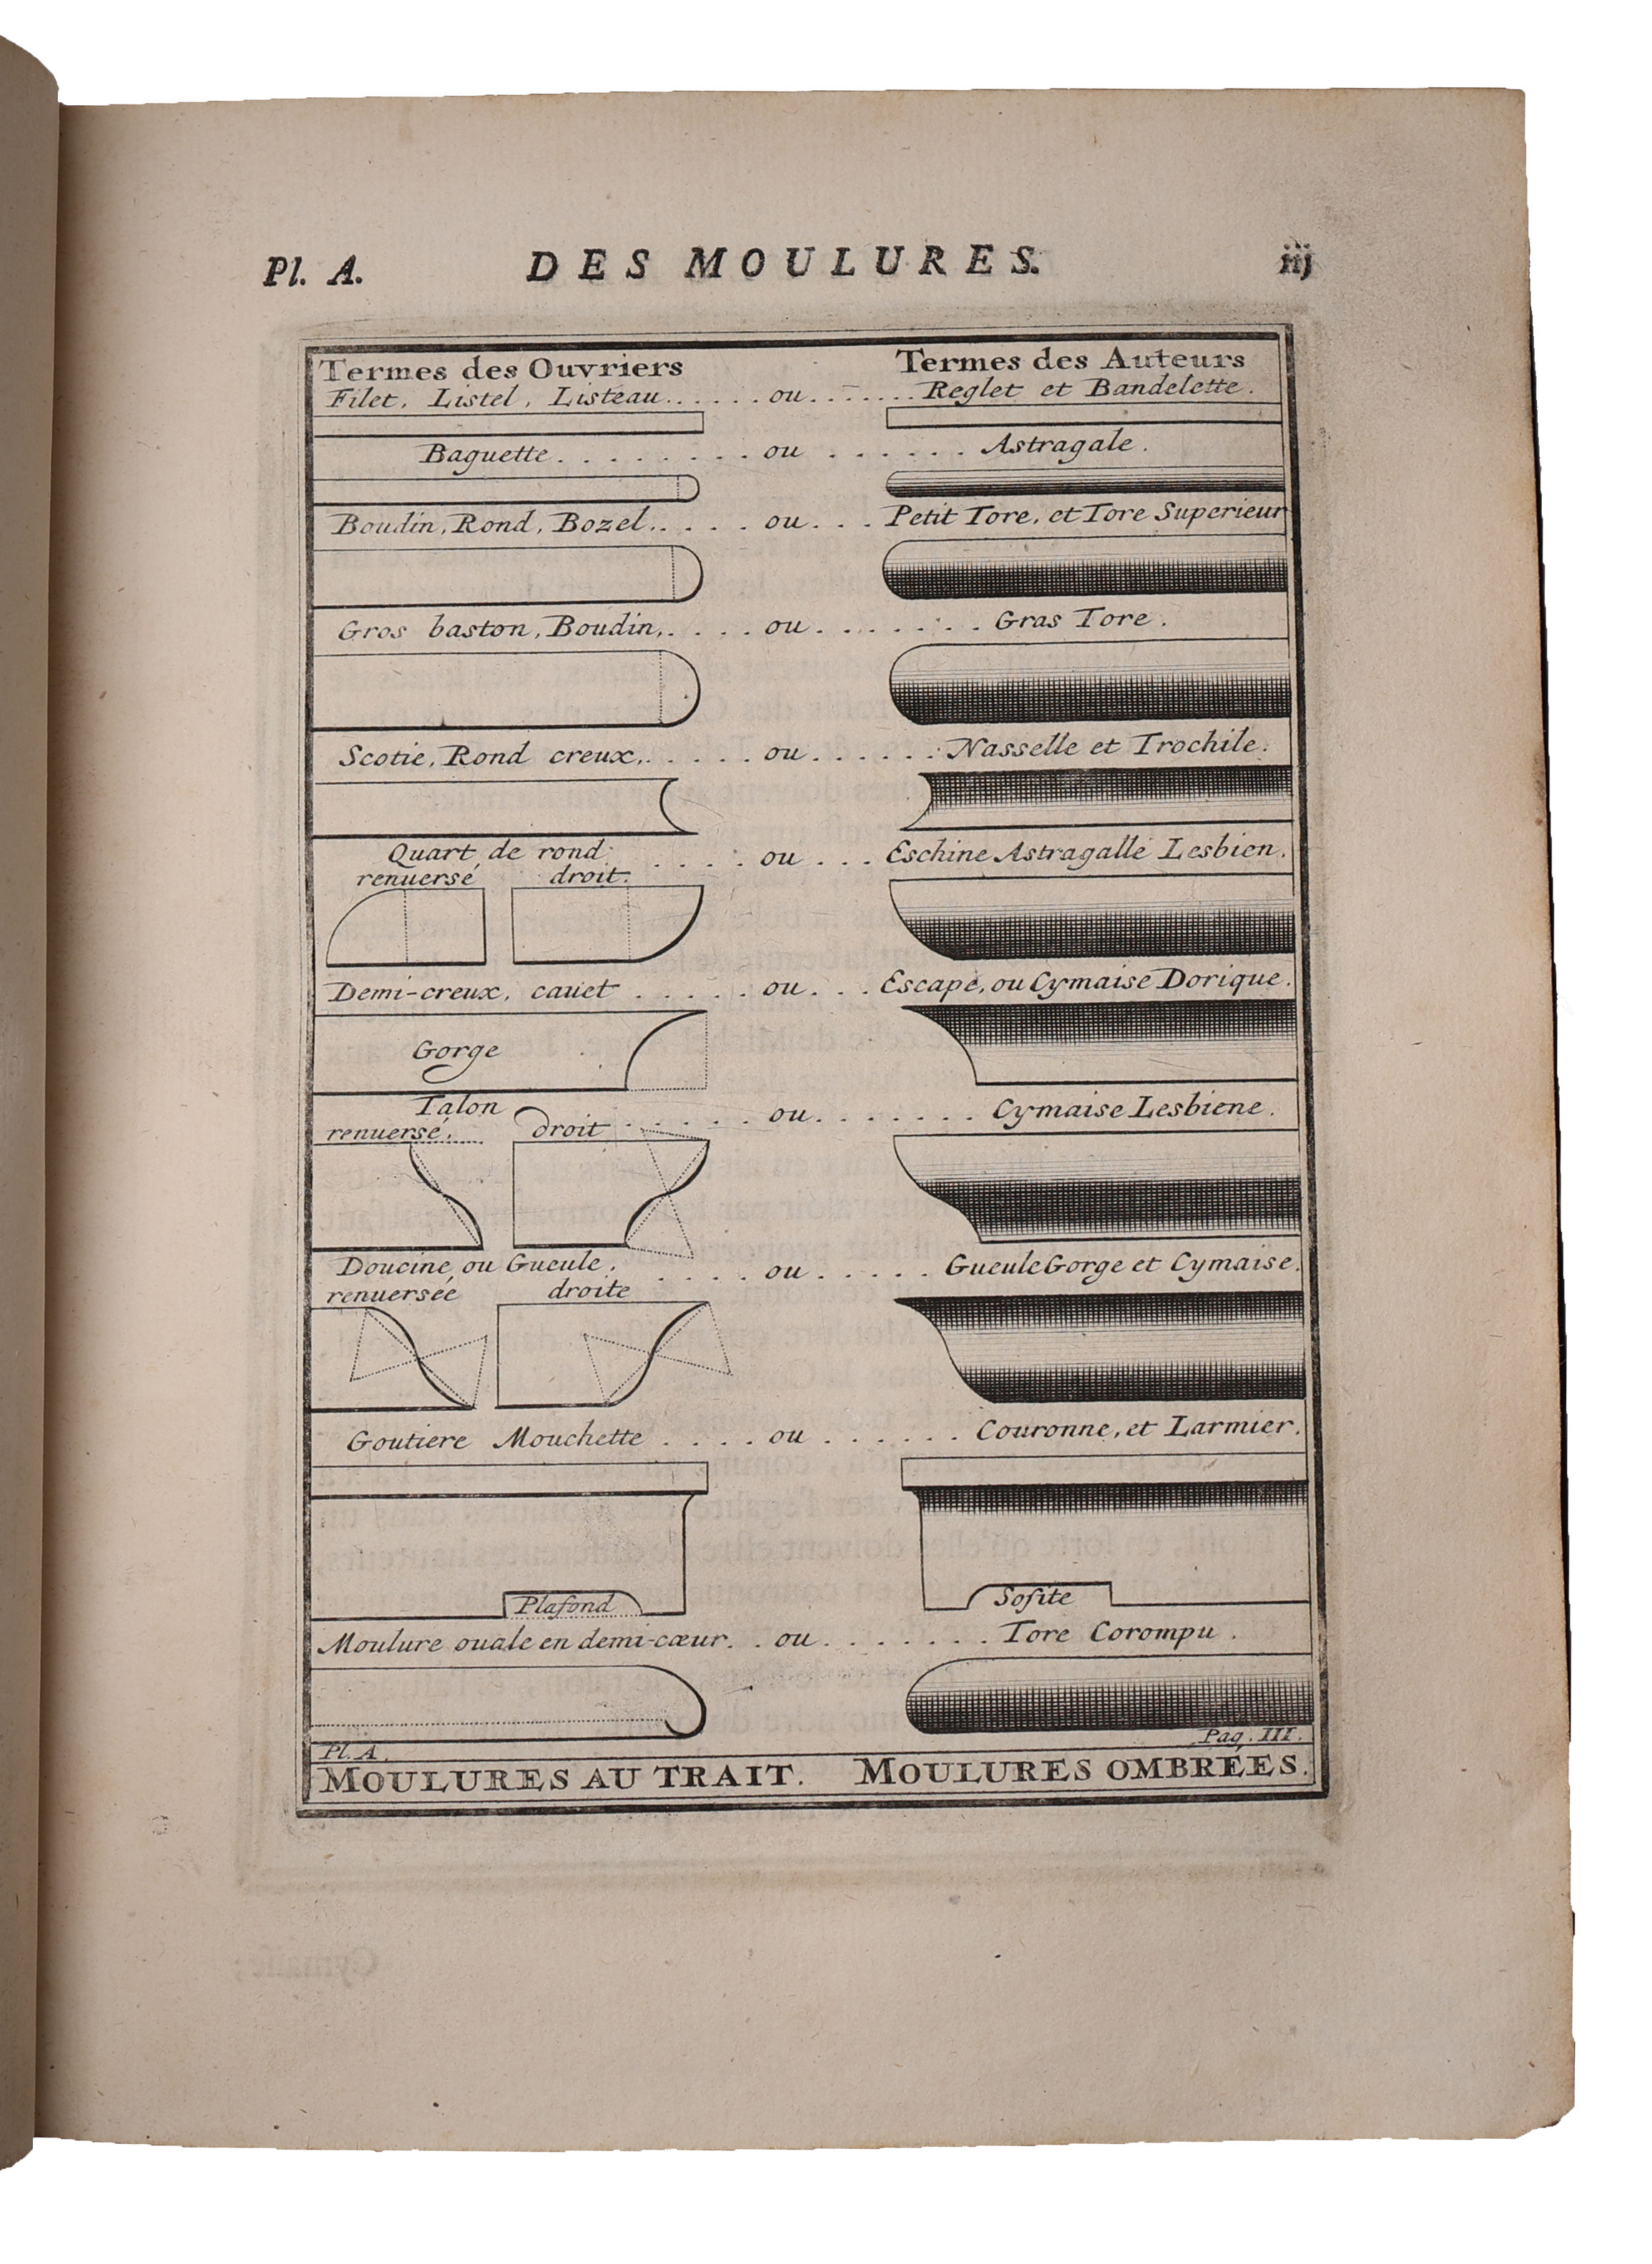 Pl. A. DES MOULURES. iij
Termes des Ouvriers Termes des Auteurs
Filet, Listel, Listeau. . . . . . ou. . . . . . . Reglet et Bandelette.
Baguette. . . . . . . . . ou . . . . . . Astragale.
Boudin, Rond, Bozel. . . . . ou. . . Petit Tore, et Tore Superieur
Gros baston, Boudin, . . . . ou. . . . . . . . Gras Tore.
Scotie, Rond creux, . . . . . ou. . . . . . Nasselle et Trochile.
Quart de rond . . . . ou . . . Eschine Astragalle Lesbien.
renuersé droit.
Demi-creux, cauet . . . . . ou. . . Escape, ou Cymaise Dorique.
Gorge
Talon . . . . . ou. . . . . . . Cymaise Lesbiene.
renuersé. droit
Doucine ou Gueule. . . . . ou. . . . . Gueule Gorge et Cymaise.
renuersée droite
Goutiere Mouchette . . . . ou . . . . . . Couronne, et Larmier.
Plafond Sofite
Moulure ouale en demi-cœur. . ou. . . . . . . . Tore Corompu.
Pl. A. Pag. III.
MOULURES AU TRAIT. MOULURES OMBRÉES.